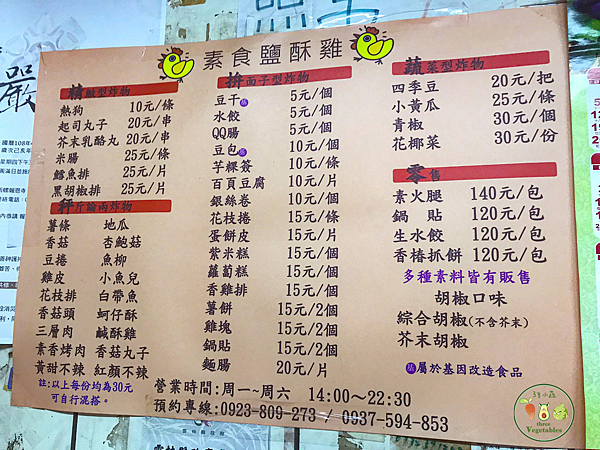 素食鹽酥雞
精緻型炸物
熱狗 10元/條
起司丸子 20元/串
芥末乳酪丸 20元/串
米腸 25元/條
鱈魚排 25元/片
黑胡椒排 25元/片
秤斤論兩炸物
薯條 地瓜
香菇 杏鮑菇
豆捲 魚柳
雞皮 小魚兒
花枝排 白帶魚
香菇頭 蚵仔酥
三層肉 鹹酥雞
素香烤肉 香菇丸子
黃甜不辣 紅顏不辣
註:以上每份均為30元
可自行混搭。
拚面子型炸物
豆干 5元/個
水餃 5元/個
QQ腸 5元/個
豆包 10元/個
芋粿簽 10元/條
百頁豆腐 10元/片
銀絲卷 10元/個
花枝捲 15元/條
蛋餅皮 15元/片
紫米糕 15元/片
蘿蔔糕 15元/片
香雞排 15元/片
薯餅 15元/2個
雞塊 15元/2個
鍋貼 15元/2個
麵腸 20元/片
蔬菜型炸物
四季豆 20元/把
小黃瓜 25元/條
青椒 30元/個
花椰菜 30元/份
零售
素火腿 140元/包
鍋貼 120元/包
生水餃 120元/包
香椿抓餅 120元/包
多種素料皆有販售
胡椒口味
綜合胡椒(不含芥末)
芥末胡椒
屬於基因改造食品
營業時間:周一~周六 14:00~22:30
預約專線:0923-809-273 / 0937-594-853
three
Vegetables